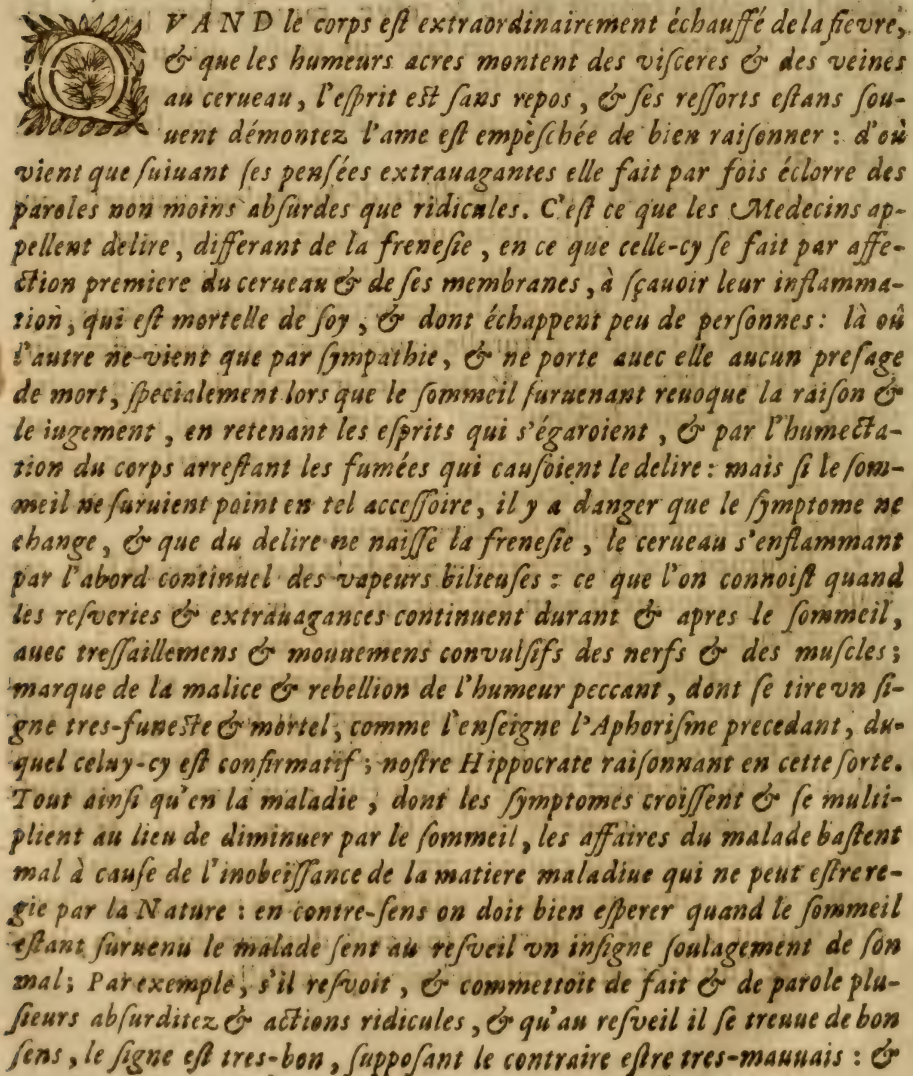 QVAND le corps eſt extraordinairement échauffé de la fievre,
& que les humeurs acres montent des viſceres & des veines
au cerueau, l'eſprit eſt ſans repos, & ſes reſſorts eſtans ſou-
uent démontez l'ame eſt empeſchée de bien raiſonner : d'où
vient que ſuiuant ſes penſées extrauagantes elle fait par fois éclorre des
paroles non moins abſurdes que ridicules. C'eſt ce que les Medecins ap-
pellent delire, differant de la freneſie, en ce que celle-cy ſe fait par affe-
ction premiere du cerueau & de ſes membranes, à ſçauoir leur inflamma-
tion, qui eſt mortelle de ſoy, & dont échappent peu de perſonnes : là où
l'autre ne-vient que par ſympathie, & ne porte auec elle aucun preſage
de mort, ſpecialement lors que le ſommeil ſuruenant reuoque la raiſon &
le iugement, en retenant les eſprits qui s'égaroient, & par l'humecta-
tion du corps arreſtant les fumées qui cauſoient le delire : mais ſi le ſom-
meil ne ſuruient point en tel acceſſoire, il y a danger que le ſymptome ne
change, & que du delire ne naiſſe la freneſie, le cerueau s'enflammant
par l'abord continuel des vapeurs bilieuſes : ce que l'on connoiſt quand
les reſveries & extrauagances continuent durant & apres le ſommeil,
auec treſſaillemens & mouuemens convulſifs des nerfs & des muſcles ;
marque de la malice & rebellion de l'humeur peccant, dont ſe tire vn ſi-
gne tres-funeſte & mortel, comme l'enſeigne l'Aphoriſme precedant, du-
quel celuy-cy eſt confirmatif ; noſtre Hippocrate raiſonnant en cette ſorte.
Tout ainſi qu'en la maladie, dont les ſymptomes croiſſent & ſe multi-
plient au lieu de diminuer par le ſommeil, les affaires du malade baſtent
mal à cauſe de l'inobeïſſance de la matiere maladiue qui ne peut eſtre re-
gie par la Nature : en contre-ſens on doit bien eſperer quand le ſommeil
eſtant ſuruenu le malade ſent au reſveil vn inſigne ſoulagement de ſon
mal ; Par exemple, s'il reſvoit, & commettoit de fait & de parole plu-
ſieurs abſurditez & actions ridicules, & qu'au reſveil il ſe treuue de bon
ſens, le ſigne eſt tres-bon, ſuppoſant le contraire eſtre tres-mauuais : &